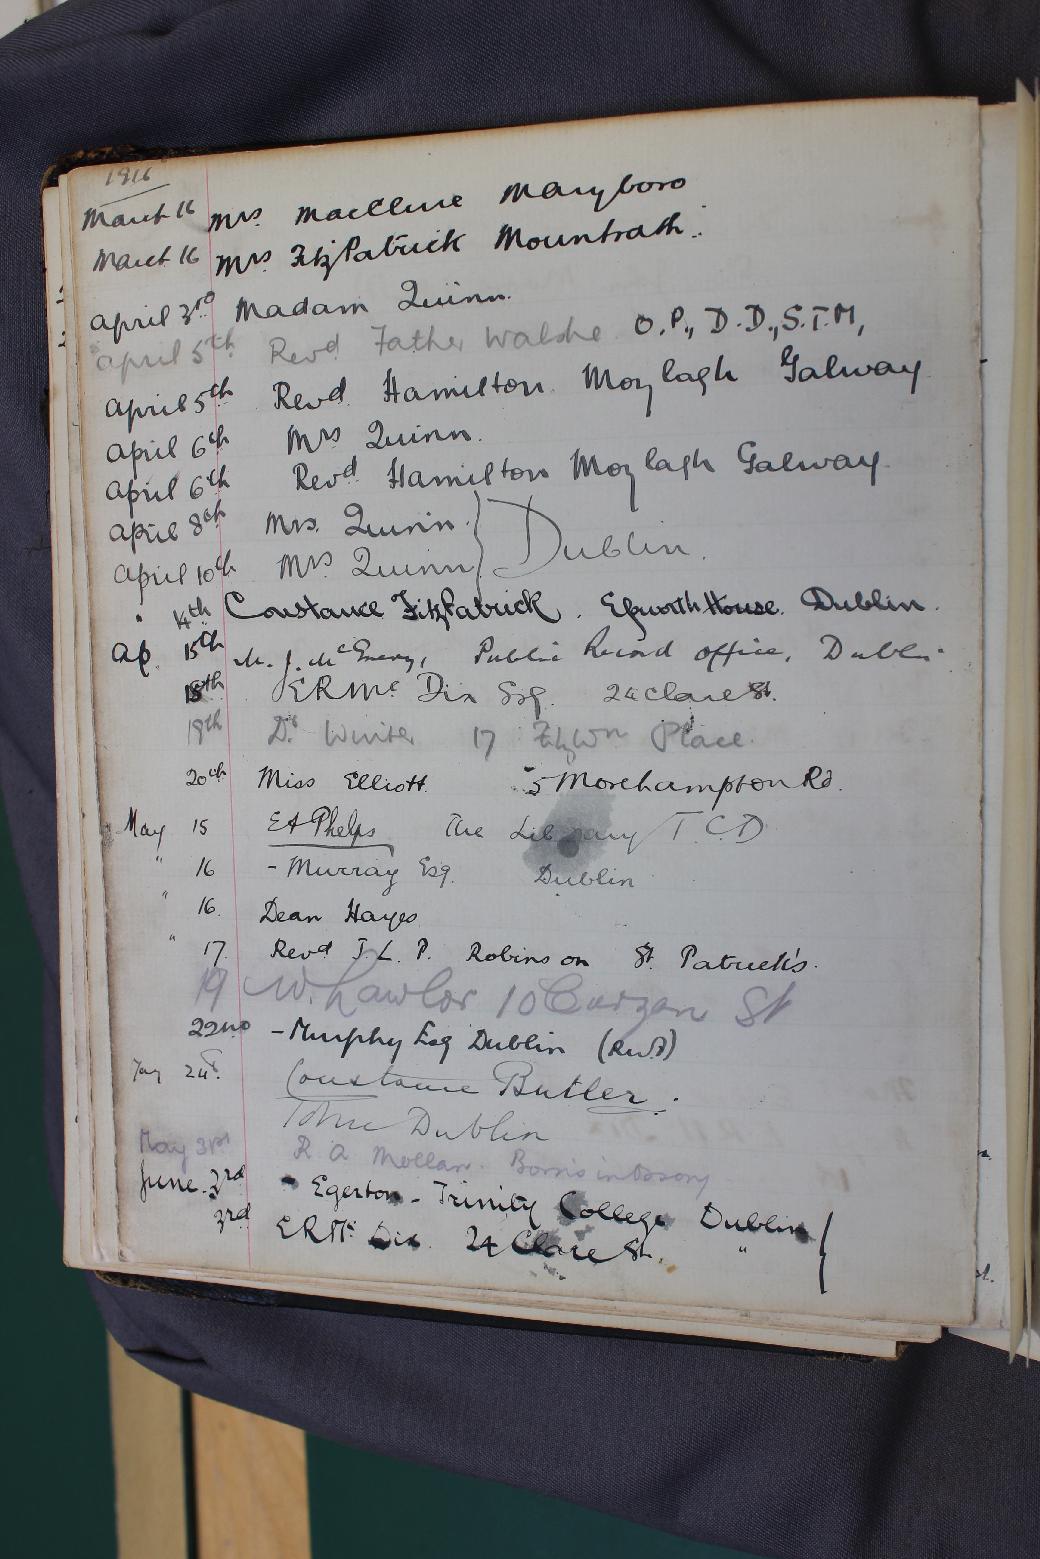 1916
March 16 Mrs MacClure Maryboro
March 16 Mrs FitzPatrick Mountrath.
April 3rd Madam Quinn.
April 5th Revd Father Walshe O.P., D.D., S.T.M,
April 5th Revd. Hamilton. Moylagh Galway
April 6th Mrs Quinn.
April 6th Revd Hamilton Moylagh Galway.
April 8th Mrs. Quinn.
Dublin.
April 10th Mrs Quinn
" 14th Constance FitzPatrick. Epworth House. Dublin.
Ap. 15th M. J. McEnery, Public Record Office, Dublin.
18th E R Mc Dix Esq. 24 Clare St.
19th Dr Winter 17 Fitzwm Place.
20th Miss Elliott 5 Morehampton Rd.
May 15 E A Phelps The Library T.C.D
" 16 - Murray Esq. Dublin
" 16. Dean Hayes
" 17. Revd J. L. P. Robinson St. Patrick's.
19 W. Lawlor 10 Curzon St
22nd - Murphy Esq Dublin (Revd)
May 24th. Constance Butler.
Dublin
May 31st R. A Mollan. Borris in Ossory
June. 3rd - Egerton - Trinity College Dublin
3rd E R Mc Dix. 24 Clare St. "